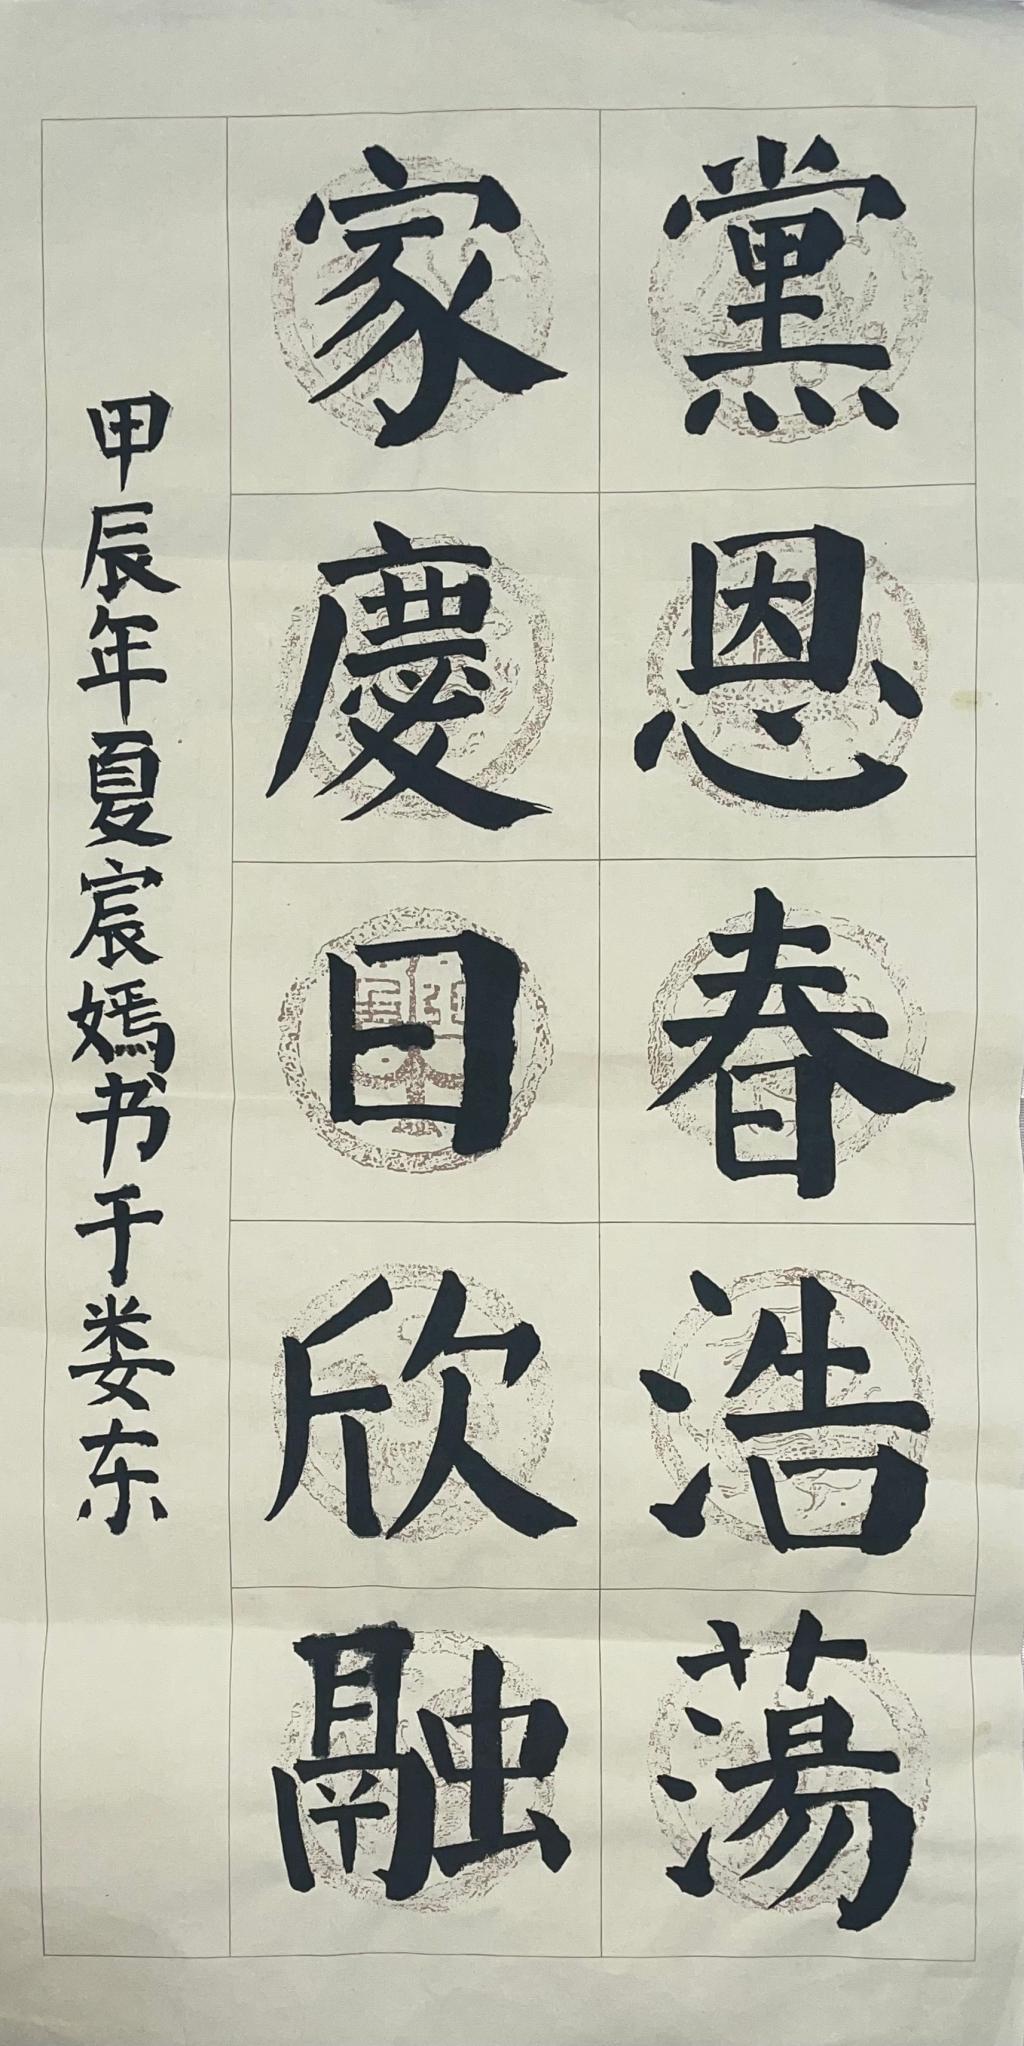 黨恩春浩蕩
家慶日欣融
甲辰年夏宸嫣书于娄东